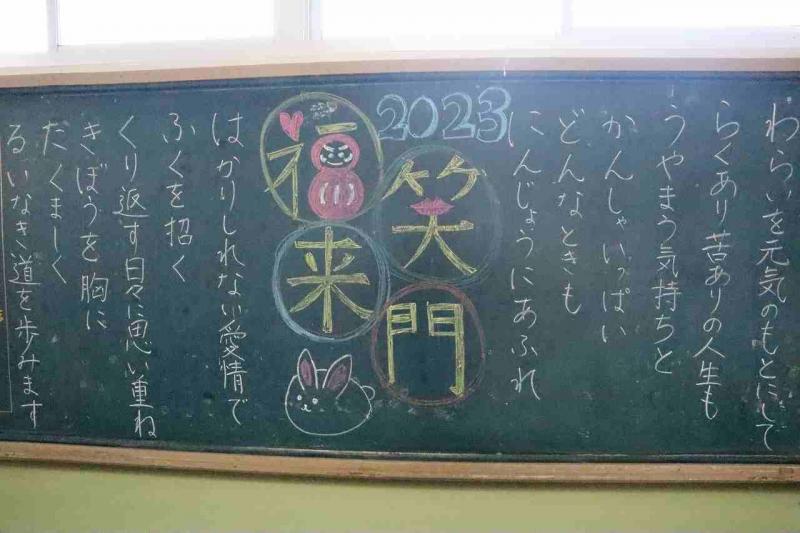 わらいを元気のもとにして
らくあり苦ありの人生も
うやまう気持ちと
かんしゃいっぱい
どんなときも
にんじょうにあふれ
2023
笑門
福来
はかりしれない愛情で
ふくを招く
くり返す日々に思い重ね
きぼうを胸に
たくましく
るいなき道を歩みます